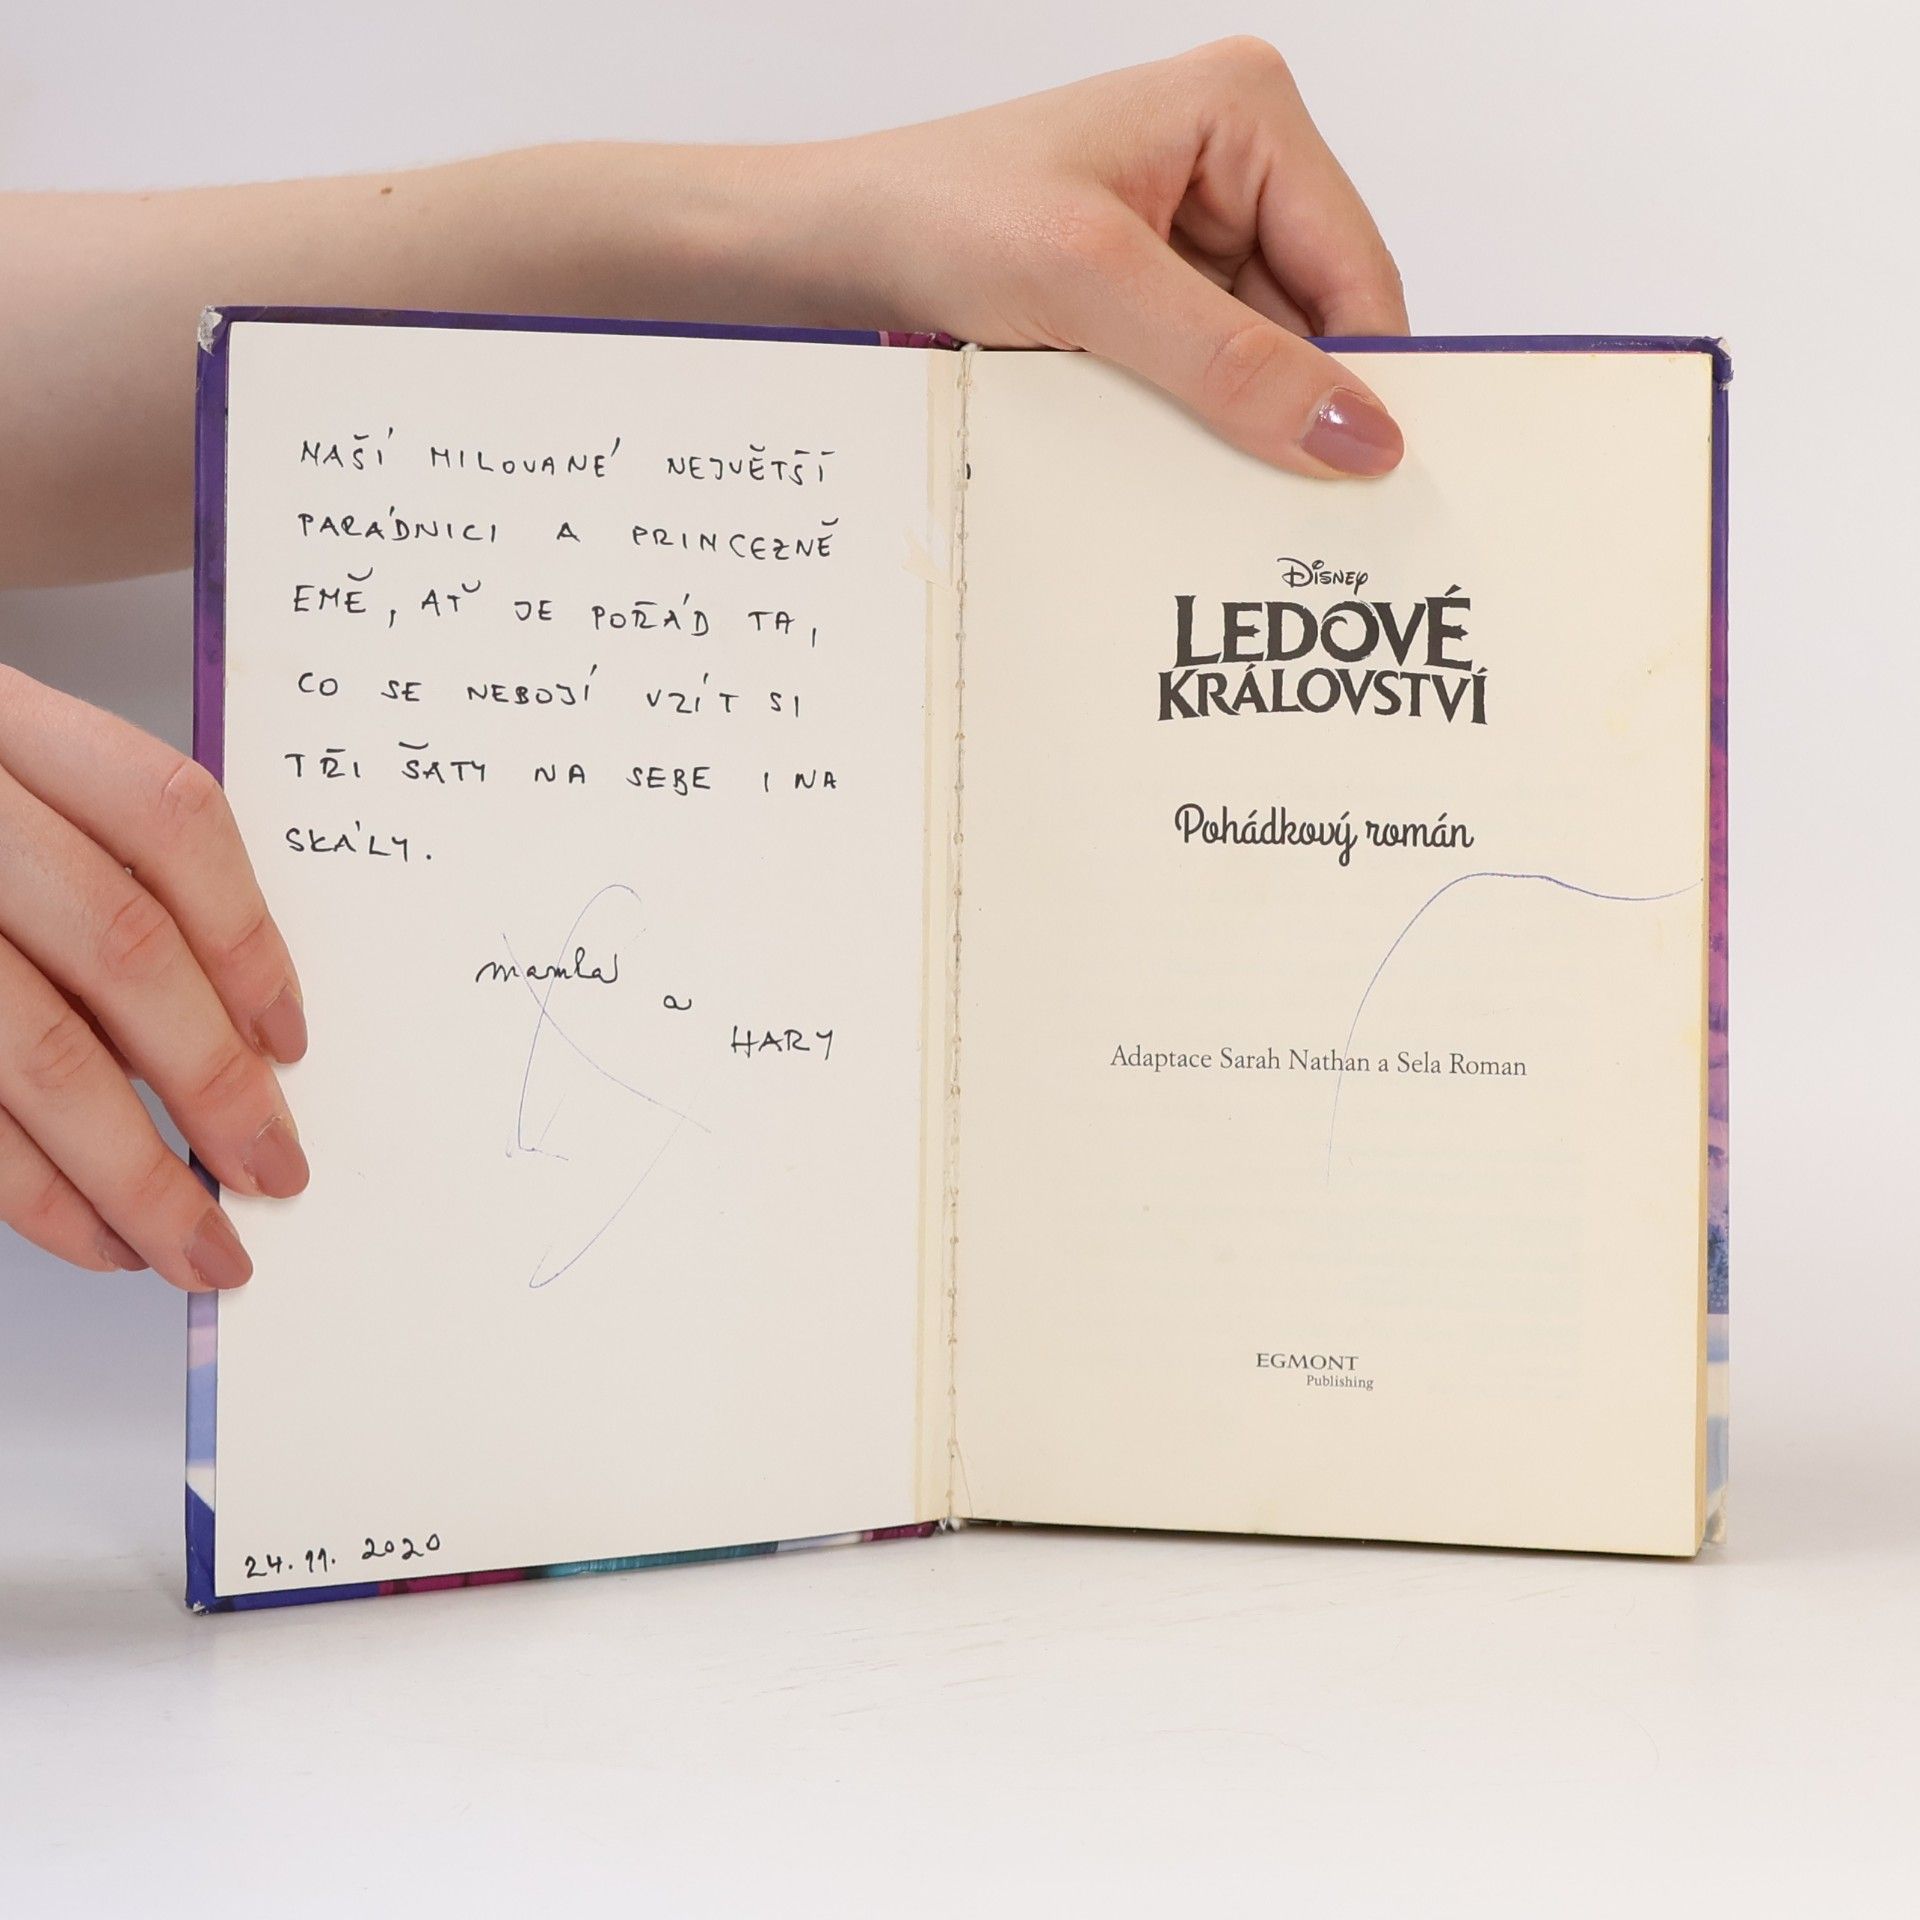 NAŠÍ MILOVANÉ NEJVĚTŠÍ
PARÁDNICI A PRINCEZNĚ
EMĚ, AŤ JE POŘÁD TA,
CO SE NEBOJÍ VZÍT SI
TŘI ŠATY NA SEBE I NA
SKÁLY.
mamka
a
HARY
24.11.2020
Disney
LEDOVÉ
KRÁLOVSTVÍ
Pohádkový román
Adaptace Sarah Nathan a Sela Roman
EGMONT
Publishing